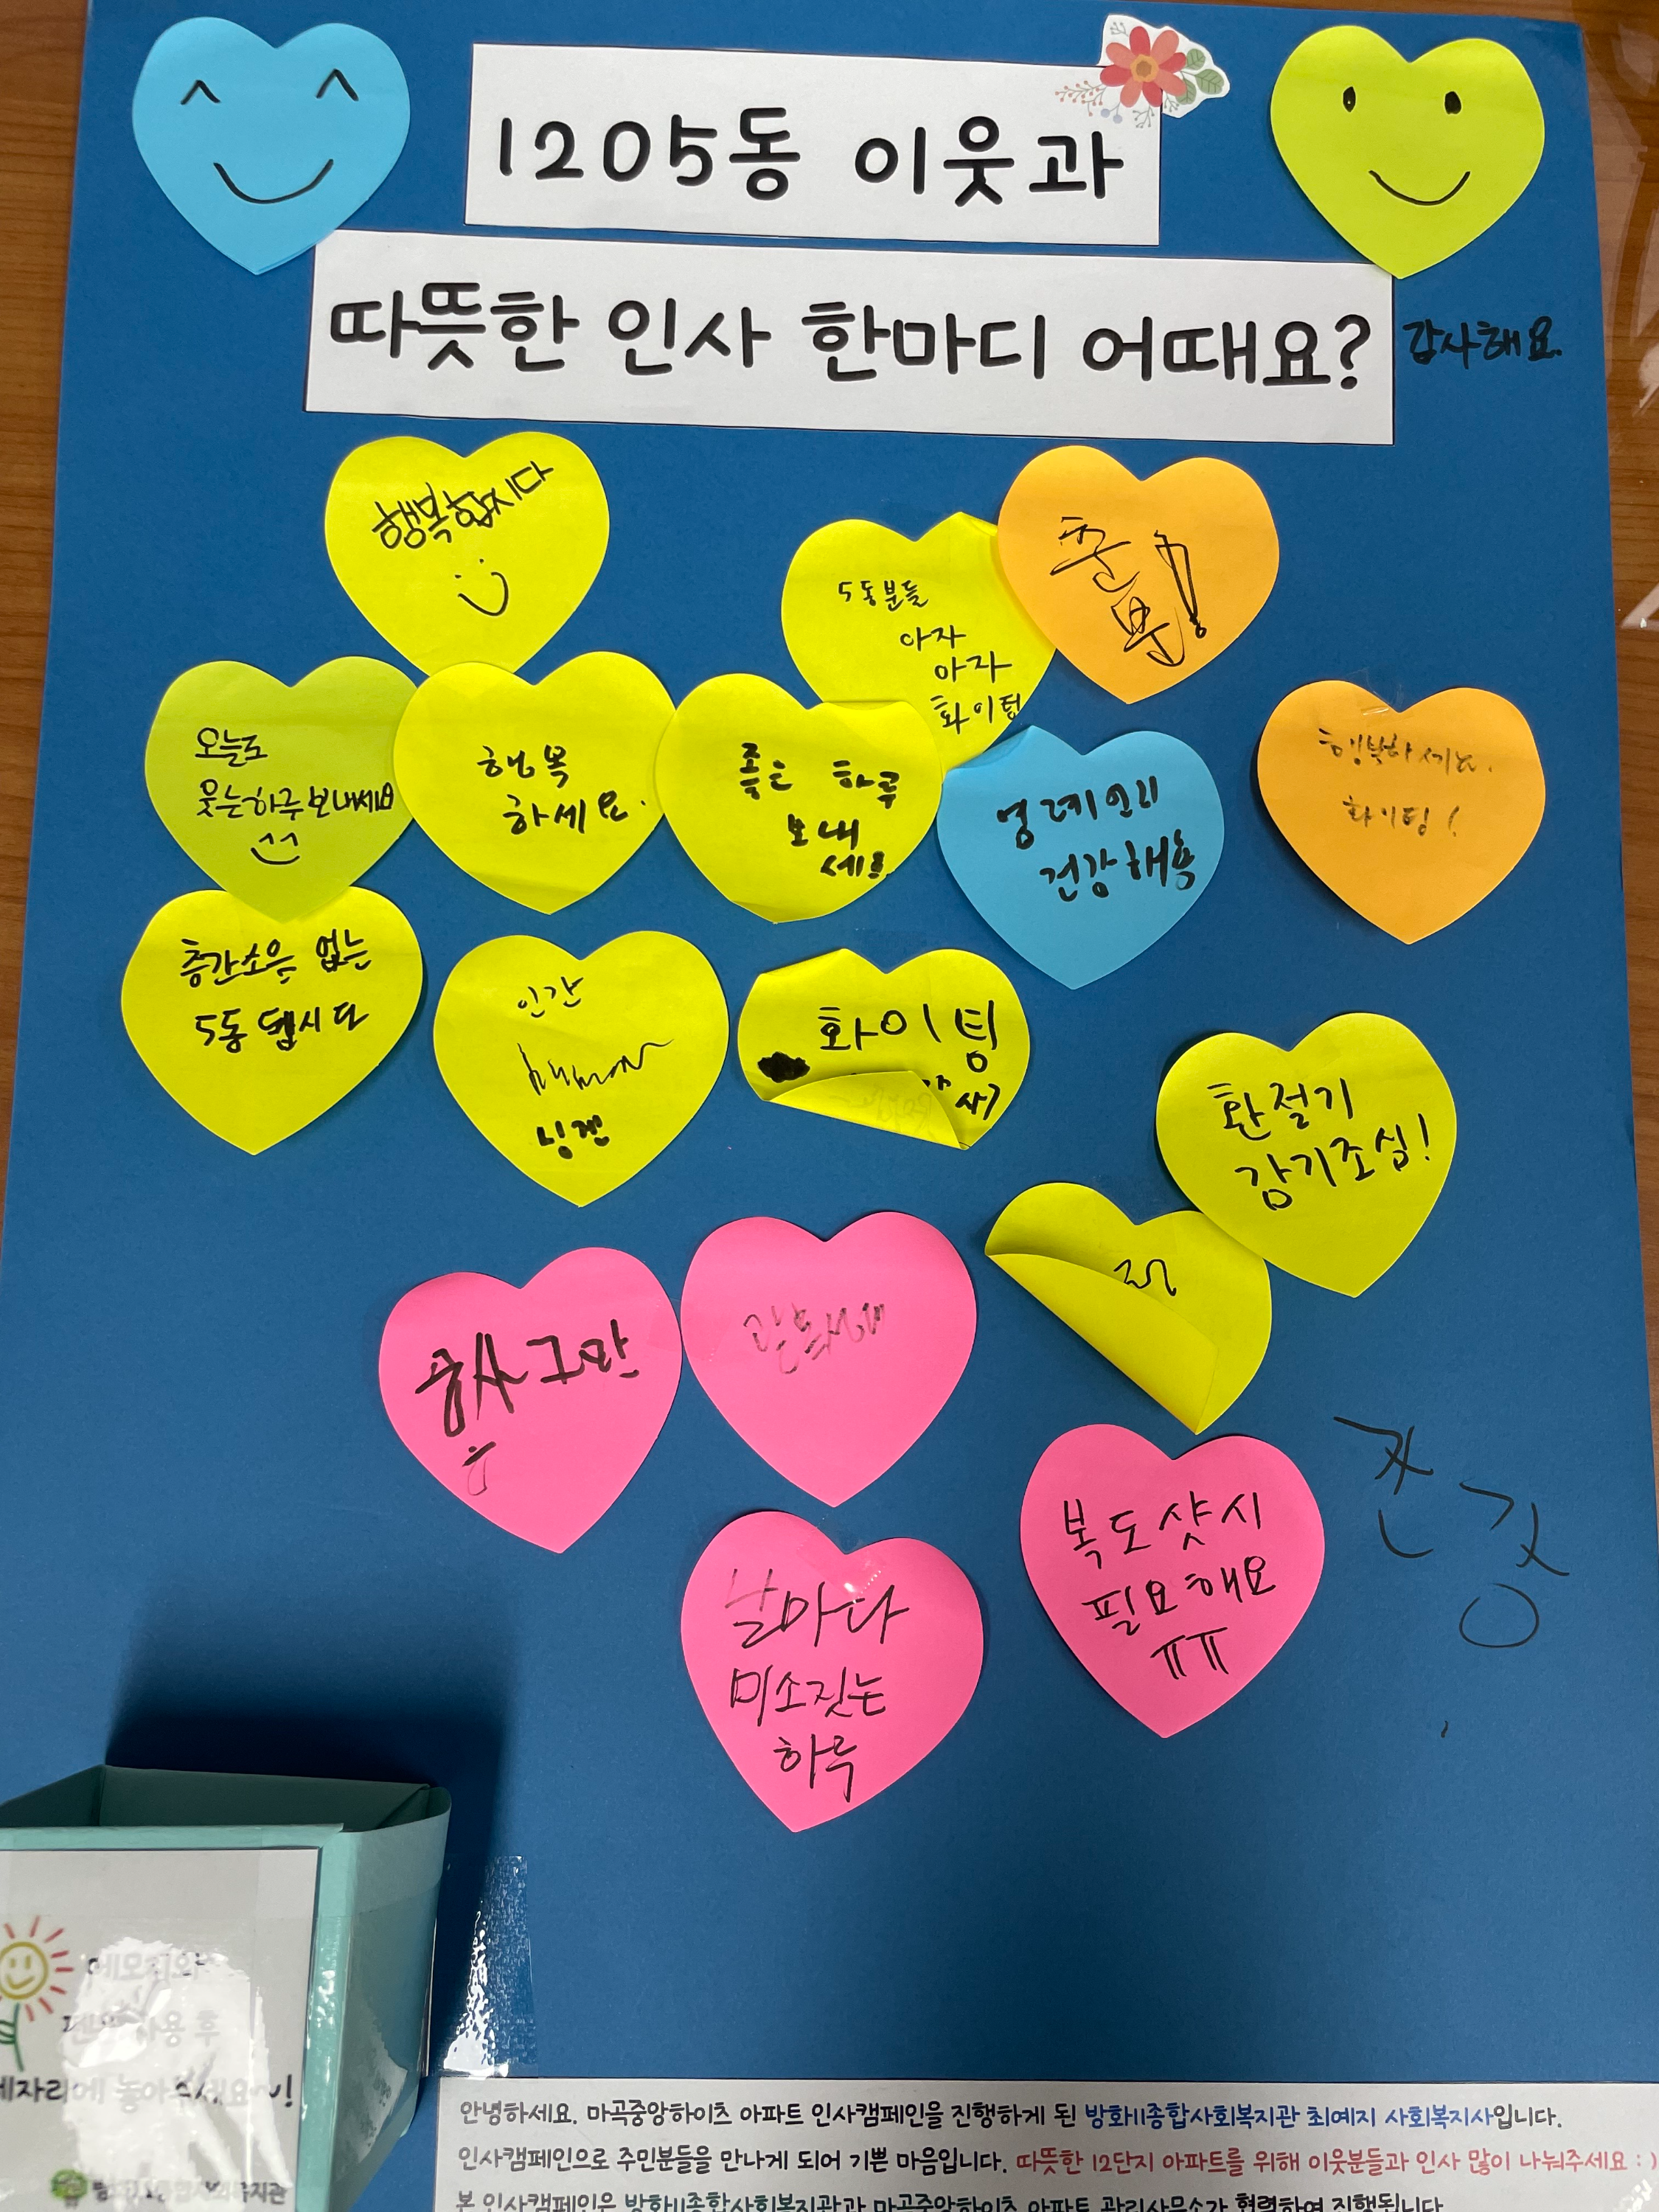 1205동 이웃과
따뜻한 인사 한마디 어때요?
감사해요.
행복합시다
5동분들
아자
아자
화이팅
오늘도
웃는하루보내세요
행복
하세요.
좋은 하루
보내
세요
건강해용
행복하세요.
화이팅!
층간소음 없는
5동 됩시다
인간
human
닝겐
화이팅
환절기
감기조심!
그만
날마다
미소짓는
하루
복도샷시
필요해요
ㅠㅠ
메모지와
펜은 사용 후
제자리에 놓아주세요~!
안녕하세요. 마곡중앙하이츠 아파트 인사캠페인을 진행하게 된 방화11종합사회복지관 최예지 사회복지사입니다.
인사캠페인으로 주민분들을 만나게 되어 기쁜 마음입니다. 따뜻한 12단지 아파트를 위해 이웃분들과 인사 많이 나눠주세요 : )
본 인사캠페인은 방화11종합사회복지관과 마곡중앙하이츠 아파트 관리사무소가 협력하여 진행됩니다